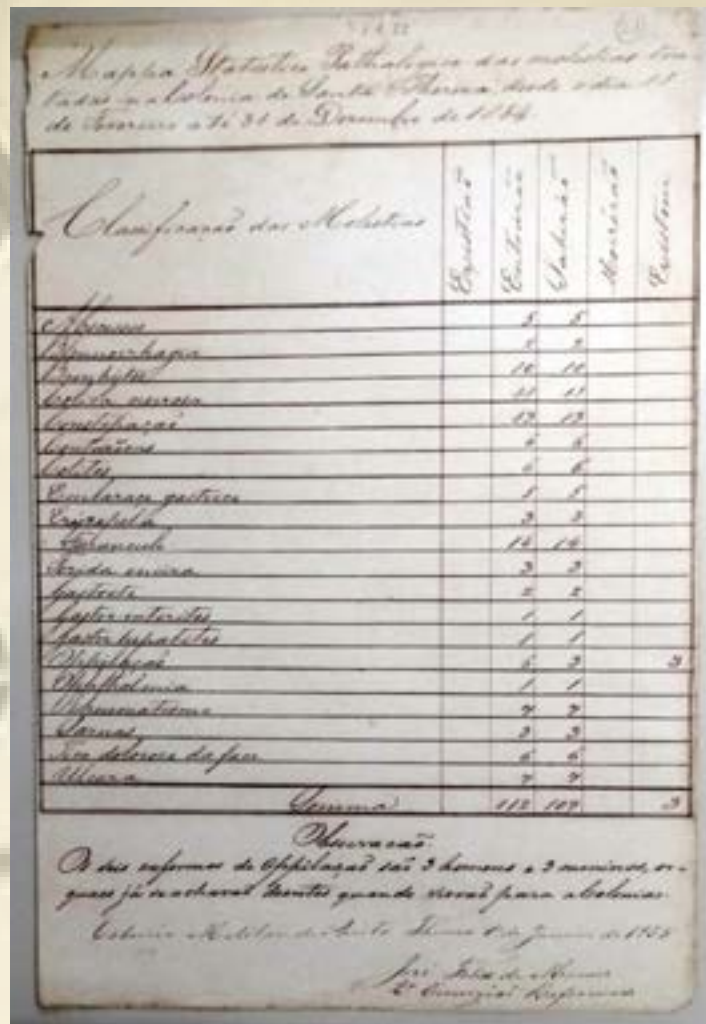 Mappa Statistico Pathologico das molestias tra-
tadas na Colonia de Santa Thereza desde o dia
de Fevereiro até 31 de Dezembro de 1854.
Classificação das Molestias Existião Entrarão Sahirão Morrerão Existem
Abcessos 5 5
Blennorrhagia 2 2
Bronchites 10 10
Colica nervosa 11 11
Constipação 13 13
Contusões 6 6
Colites 6 6
Embaraço gastrico 5 5
Erysipela 3 3
Furunculo 14 14
3 3
Gastrite 2 2
Gastro enterites 1 1
Gastro hepatites 1 1
Oppilaçaõ 6 3 3
Ophthalmia 1 1
Rheumatismo 7 7
Sarnas 3 3
Tico doloroso da face 6 6
Ulcera 7 7
Somma 112 109 3
Observacaõ.
Os seis enfermos de Oppilaçaõ saõ 3 homens e 3 meninos, os
quaes já se achavaõ doentes quando vieraõ para a Colonia.
Colonia Militar de Santa Thereza de Janeiro de 1855
José
2º Cirurgiaõ